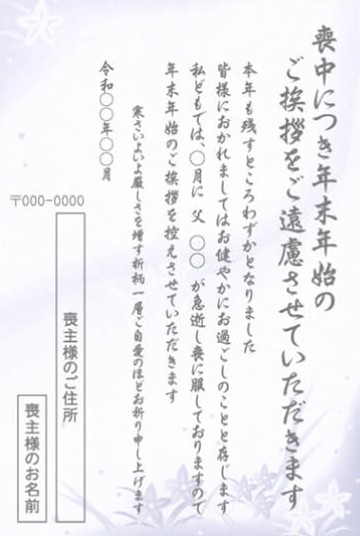 喪中につき年末年始の
ご挨拶をご遠慮させていただきます
本年も残すところわずかとなりました
皆様におかれましてはお健やかにお過ごしのことと存じます
私どもでは、〇月に 父 〇〇 が急逝し喪に服しておりますので
年末年始のご挨拶を控えさせていただきます
寒さいよいよ厳しさを増す折柄一層ご自愛のほどお祈り申し上げます
令和〇〇年〇〇月
〒000-0000
喪主様のご住所
喪主様のお名前